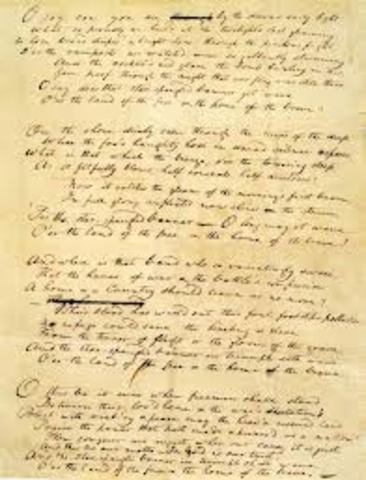 O say can you see by the dawn's early light
What so proudly we hail'd at the twilight's last gleaming
Whose broad stripes & bright stars through the
O'er the ramparts we watch'd, were so gallantly streaming?
And the rocket's red glare, the bomb bursting in air,
Gave proof through the night that our flag was still there
O say does that star spangled banner yet wave
O'er the land of the free & the home of the brave?
On the shore dimly seen through the mists of the deep
Where the foe's haughty host in dread silence reposes
What is that which the breeze, o'er the towering steep
As it fitfully blows, half conceals, half discloses?
Now it catches the gleam of the morning's first beam
In full glory reflected now shines in the stream
'Tis the star-spangled banner — O long may it wave
O'er the land of the free & the home of the brave!
And where is that band who so vauntingly swore
That the havoc of war & the battle's confusion
A home & a Country should leave us no more?
Their blood has wash'd out their foul footstep's pollution
No refuge could save the hireling & slave
From the terror of flight or the gloom of the grave
And the star-spangled banner in triumph doth wave
O'er the land of the free & the home of the brave
O thus be it ever when freemen shall stand
Between their lov'd home & the war's desolation!
Blest with vict'ry & peace may the heav'n rescued land
Praise the power that hath made & preserv'd us a nation!
Then conquer we must, when our cause it is just
And this be our motto — In God is our trust
And the star-spangled banner in triumph shall wave
O'er the land of the free & the home of the brave. —